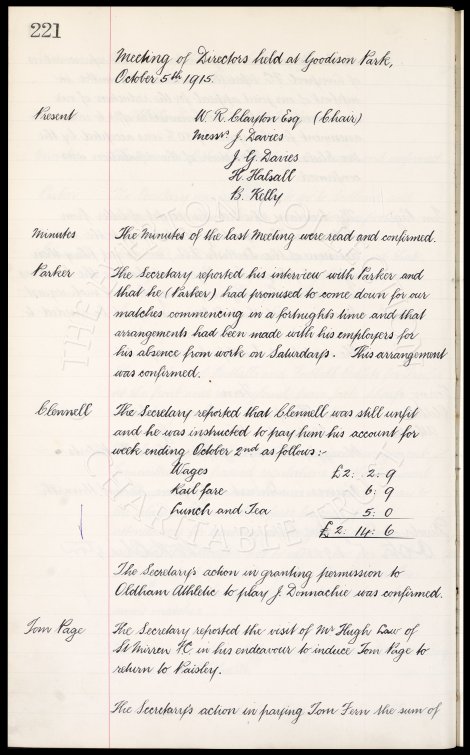 221
Meeting of Directors held at Goodison Park,
October 5th 1915.
Present W. R. Clayton Esq (Chair)
Messrs. J. Davies
J. G. Davies
H. Halsall
B. Kelly
Minutes The Minutes of the last Meeting were read and confirmed.
Parker The Secretary reported his interview with Parker and
that he (Parker) had promised to come down for our
matches commencing in a fortnights time and that
arrangements had been made with his employers for
his absence from work on Saturdays. This arrangement
was confirmed.
Clennell The Secretary reported that Clennell was still unfit
and he was instructed to pay him his account for
week ending October 2nd as follows:-
Wages £2: 2: 9
Rail fare 6: 9
Lunch and Tea 5: 0
£2: 14: 6
The Secretary's action in granting permission to
Oldham Athletic to play J. Donnachie was confirmed.
Tom Page The Secretary reported the visit of Mr Hugh Law of
St Mirren FC in his endeavour to induce Tom Page to
return to Paisley.
The Secretary's action in paying Tom Fern the sum of